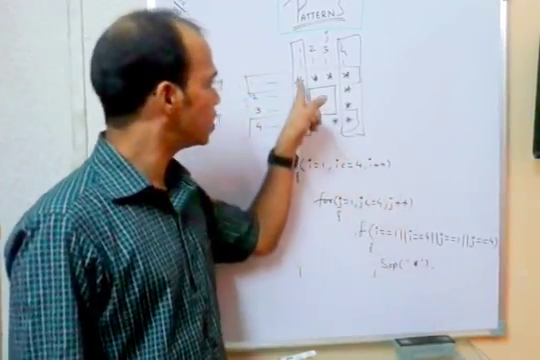 PATTERNS
j
1 2 3 4
* * *
2 *
3 *
4 * *
(i=1, i<=4, i++)
{
for(j=1, j<=4, j++)
{
if(i==1||i==4||j==1||j==4)
{
Sop("*").